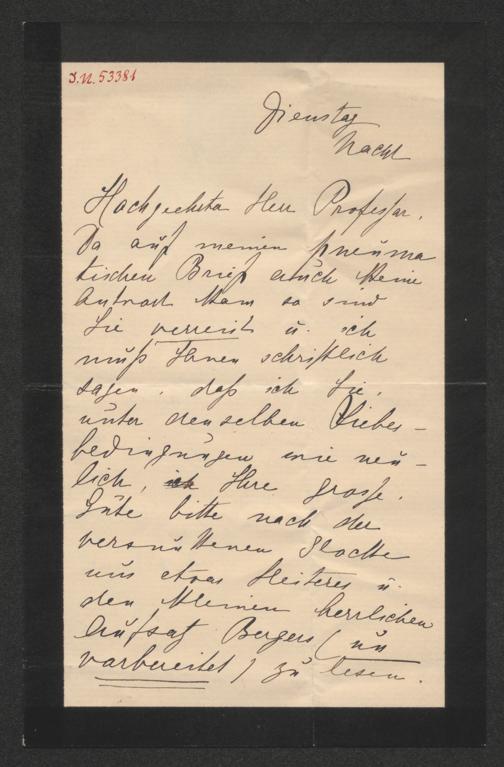 J.N. 53381
Dienstag
Nacht
Hochgeehrter Herr Professor.
Da auf meinen pneuma
tischen Brief auch keine
Antwort kam so sind
Sie verreist u. ich
muß Ihnen schriftlich
sagen, daß ich Sie,
unter denselben Liebes-
bedingungen wie neu-
lich, Ihre grosse.
Güte bitte nach der
versunkenen Glocke
uns etwas Heiteres u.
den kleinen herrlichen
Aufsatz Bergers (un
vorbereitet) zu lesen.